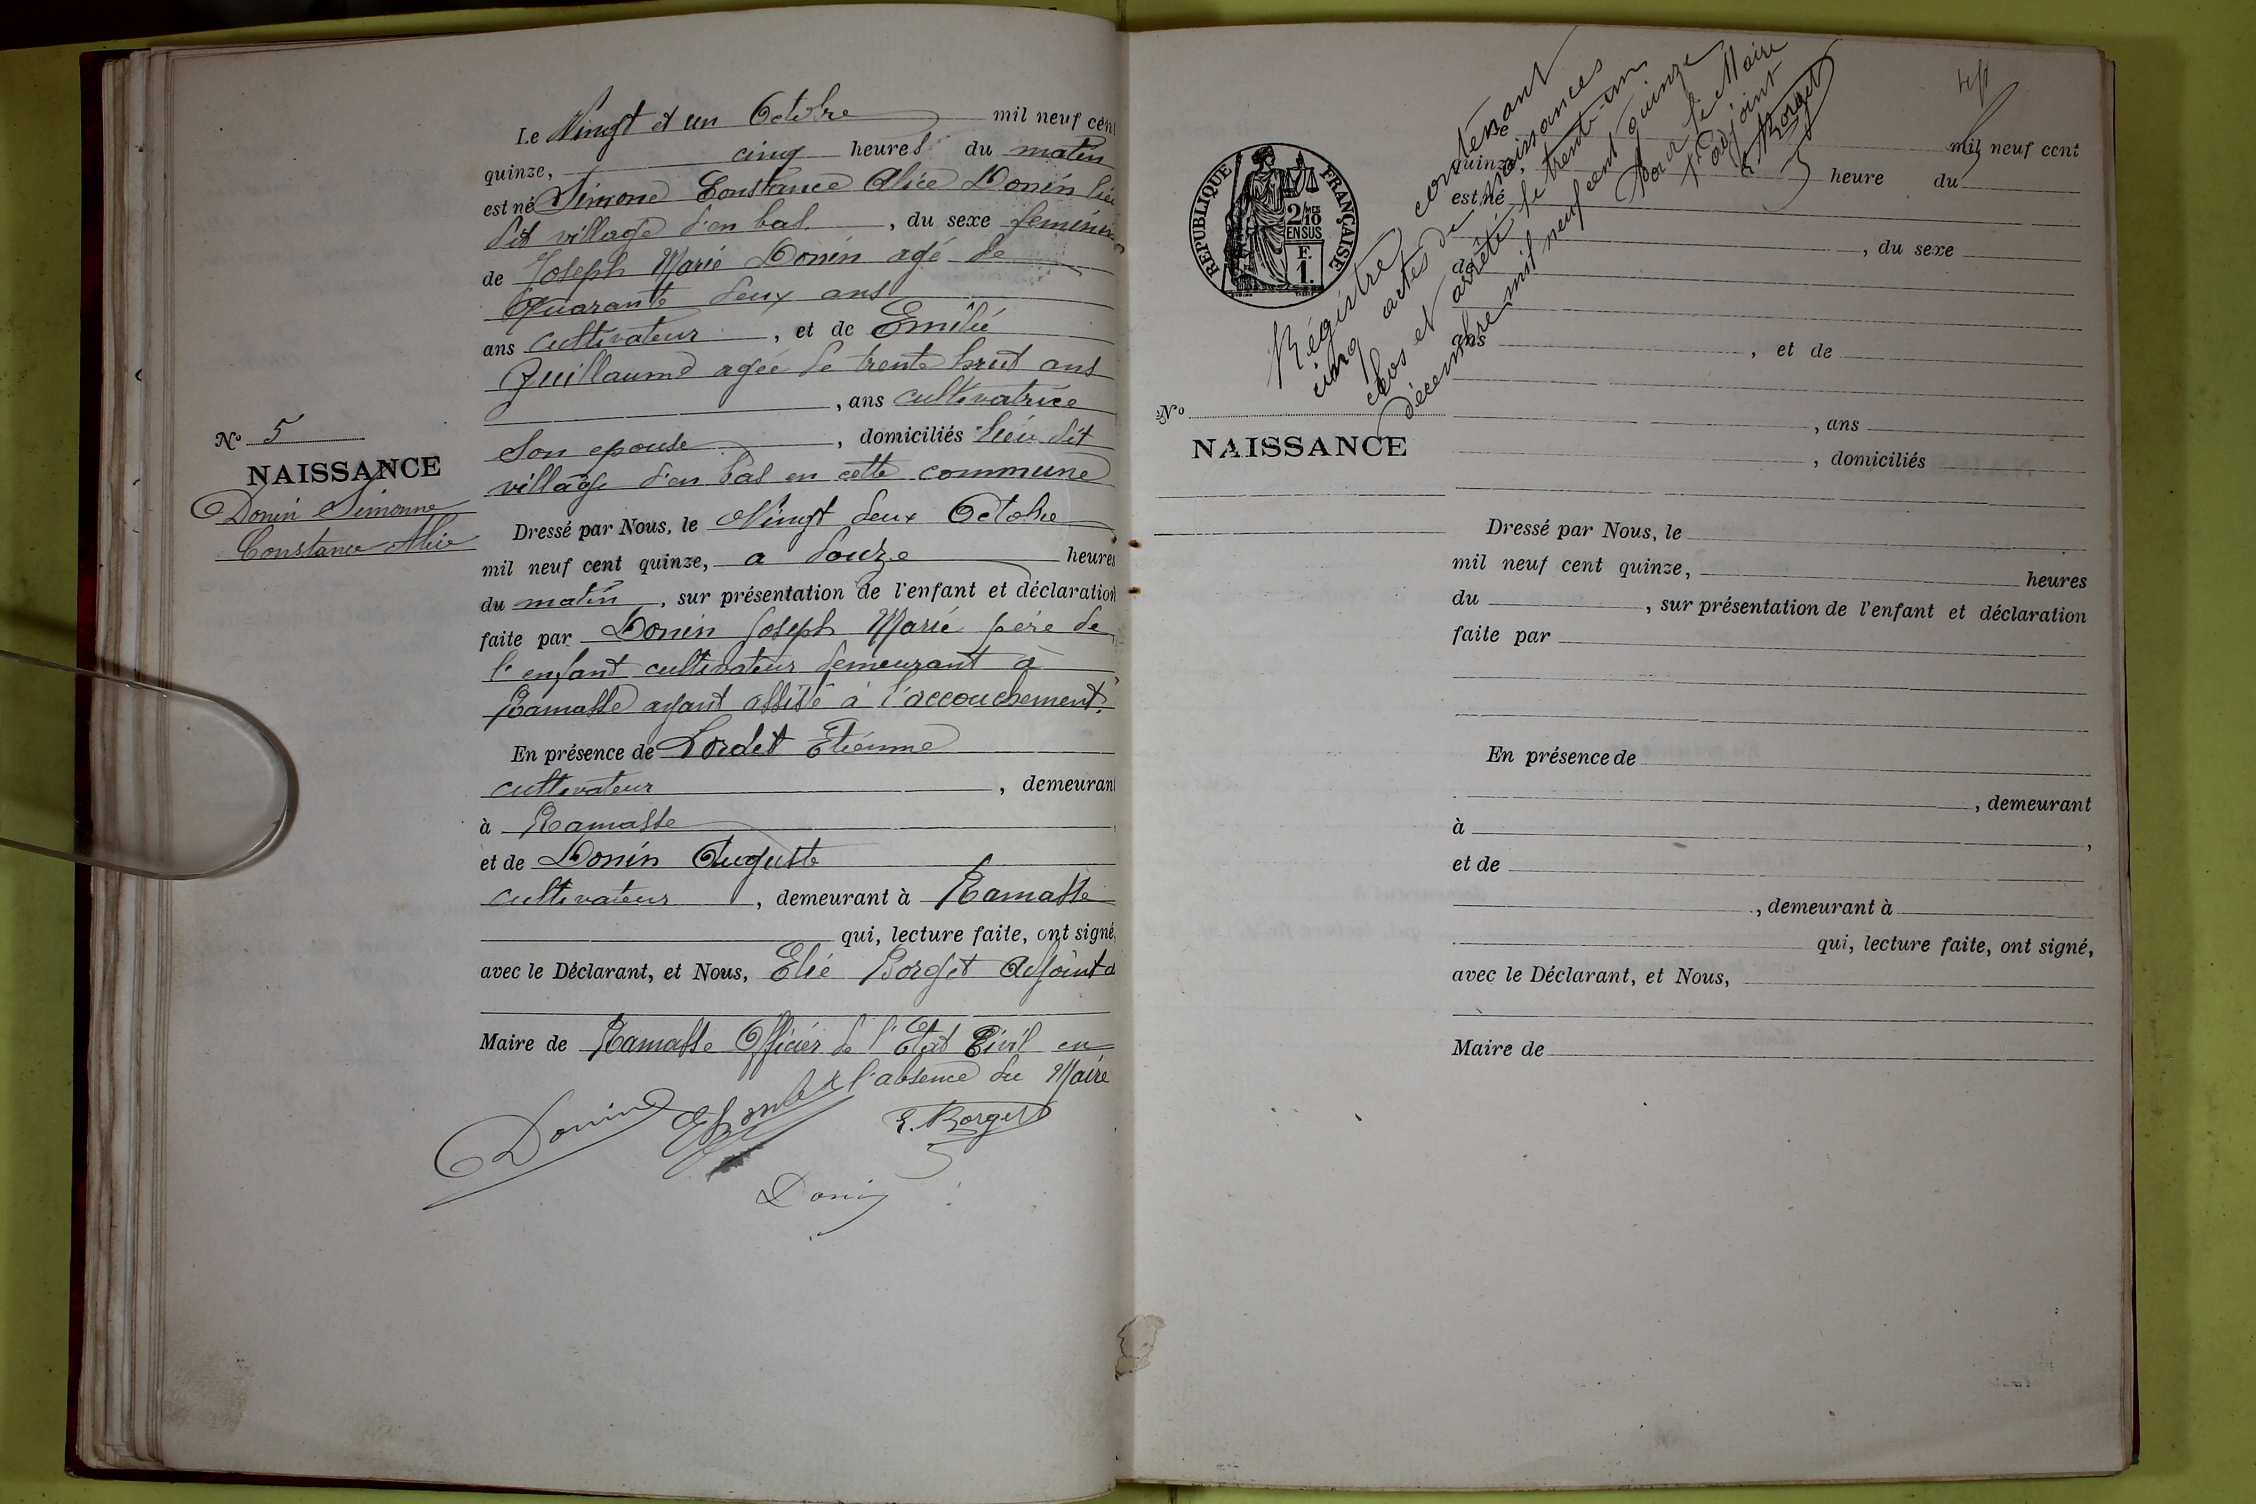 Le Vingt et un Octobre mil neuf cent
quinze, cinq heures du matin
est né Simone Constance Alice Donin lieu
dit village d'en bas, du sexe feminin
de Joseph Marie Donin agé de
Quarante deux ans
ans cultivateur, et de Emilie
Guillaume agée de trente huit ans
, ans cultivatrice
Son epouse, domiciliés lieu dit
village d'en bas en cette commune
No 5
NAISSANCE
Donin Simonne
Constance Alice
Dressé par Nous, le Vingt deux Octobre
mil neuf cent quinze, a douze heures
du matin, sur présentation de l'enfant et déclaration
faite par Donin Joseph Marie père de
l'enfant cultivateur demeurant à
Ramasse ayant assisté à l'accouchement.
En présence de Lordet Etienne
cultivateur, demeurant
à Ramasse
et de Donin Auguste
cultivateur, demeurant à Ramasse
qui, lecture faite, ont signé,
avec le Déclarant, et Nous, Elie Borget Adjoint a
Maire de Ramasse Officier de l'Etat Civil en
l'absence du Maire
Donin
E. Borget
Donin
RÉPUBLIQUE FRANÇAISE
2/10 MES
EN SUS
F.
1.
Régistre contenant
cinq actes de naissances
clos et arrêté le trente-un
décembre mil neuf cent quinze
Pour le Maire
1r adjoint
E. Borget
Le mil neuf cent
quinze, heure du
est né
, du sexe
de
ans, et de
, ans
, domiciliés
No
NAISSANCE
Dressé par Nous, le
mil neuf cent quinze, heures
du, sur présentation de l'enfant et déclaration
faite par
En présence de
, demeurant
à,
et de
, demeurant à
qui, lecture faite, ont signé,
avec le Déclarant, et Nous,
Maire de